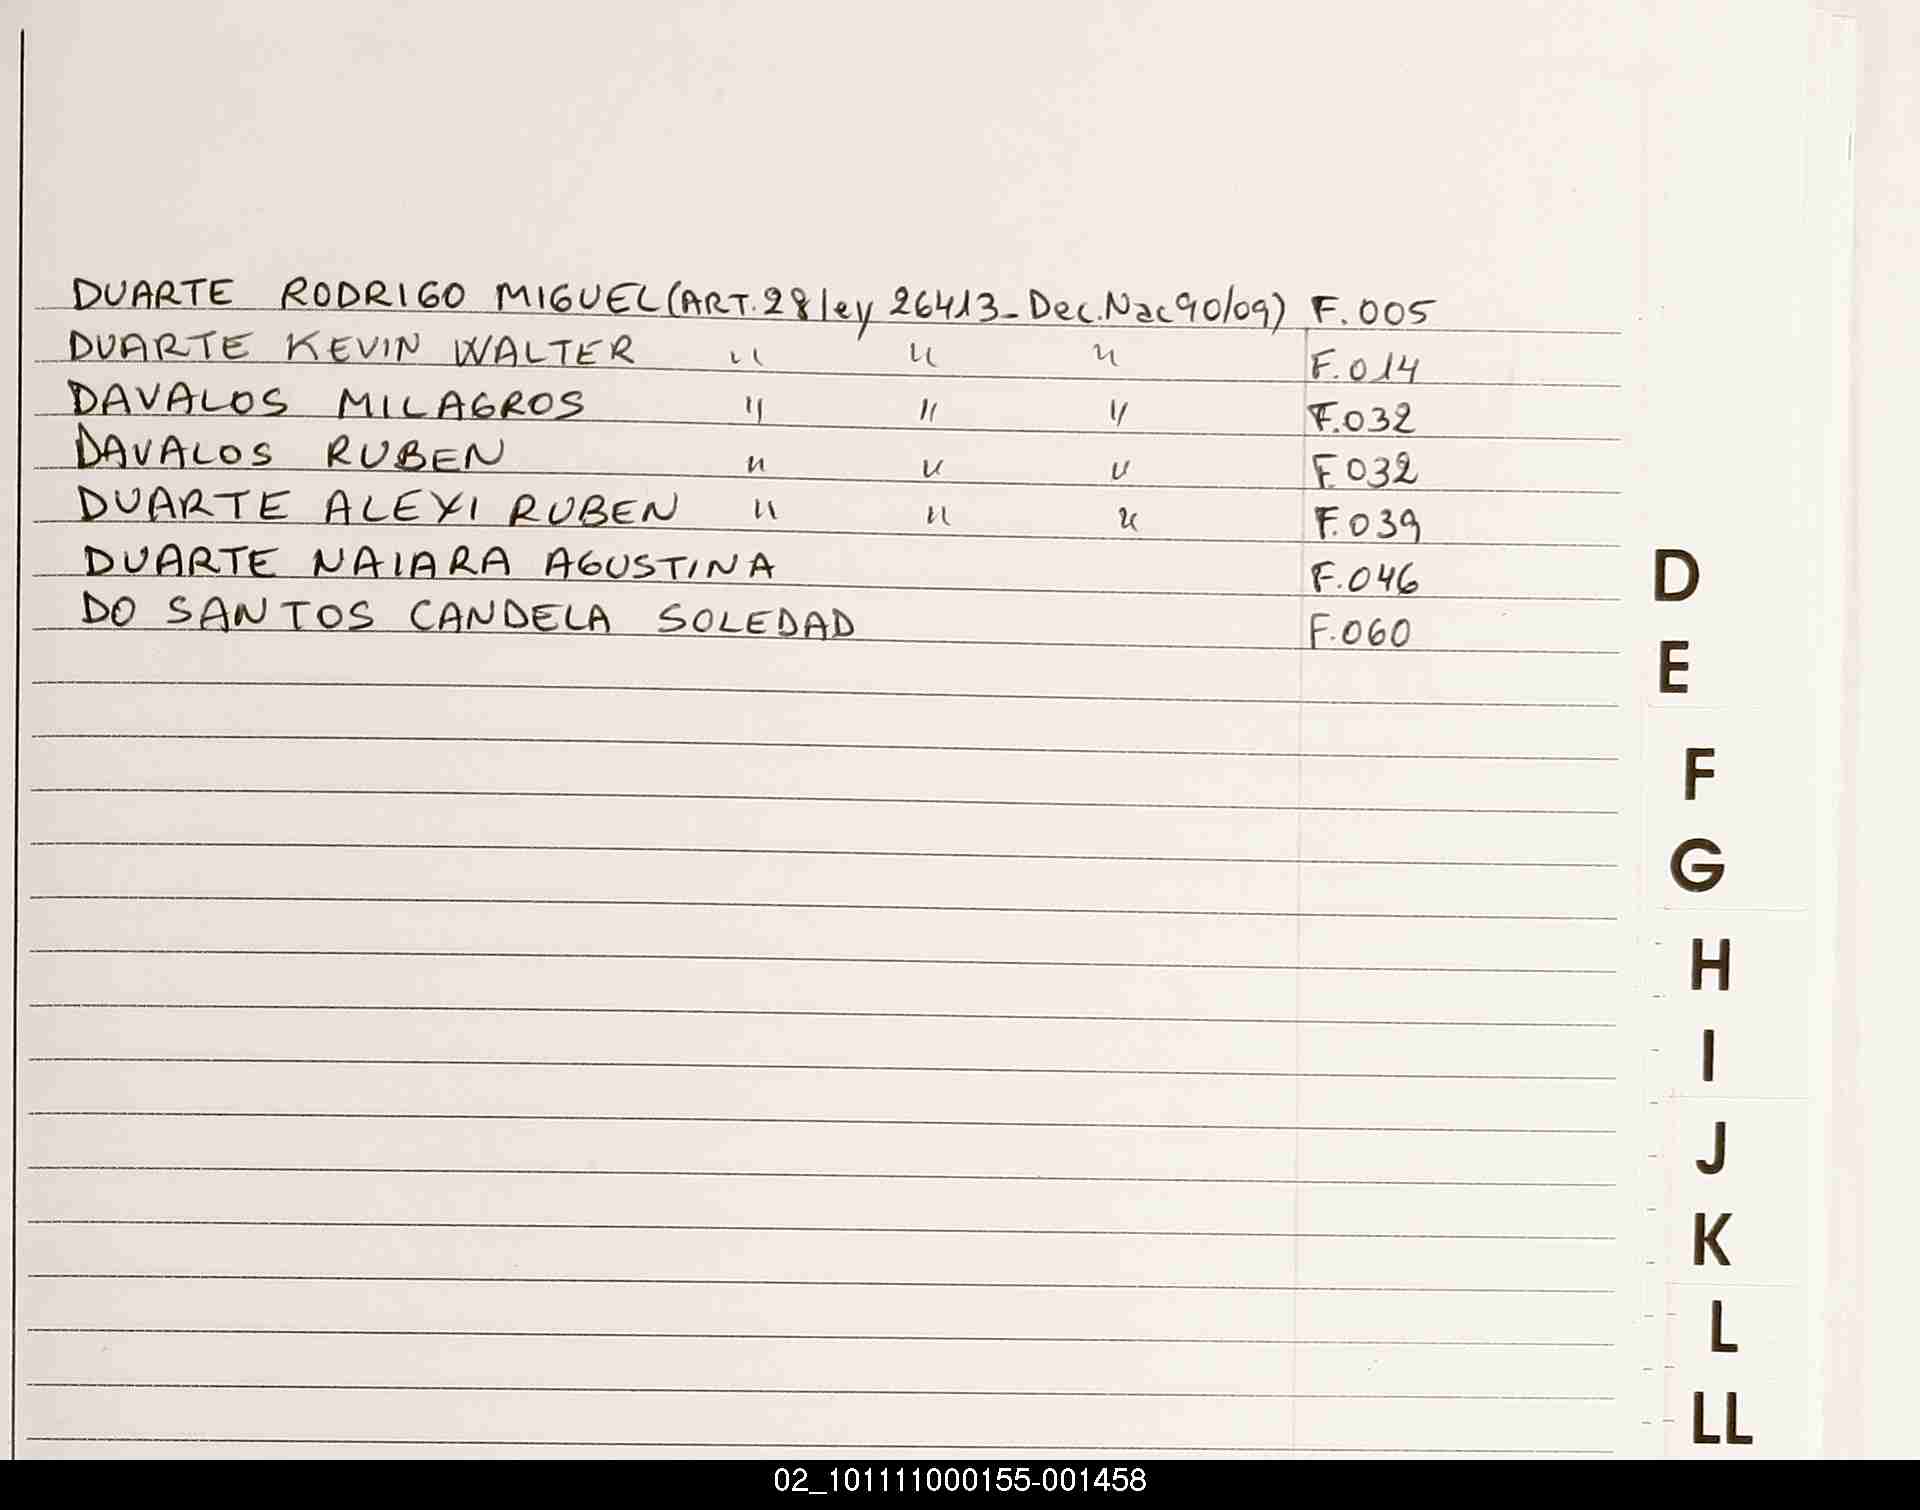 DUARTE RODRIGO MIGUEL (ART. 28 ley 26413 - Dec. Nac 90/09) F. 005
DUARTE KEVIN WALTER " " " F. 014
DAVALOS MILAGROS " " " F. 032
DAVALOS RUBEN " " " F. 032
DUARTE ALEXI RUBEN " " " F. 039
DUARTE NAIARA AGUSTINA F. 046
DO SANTOS CANDELA SOLEDAD F. 060
D
E
F
G
H
I
J
K
L
LL
02_101111000155-001458